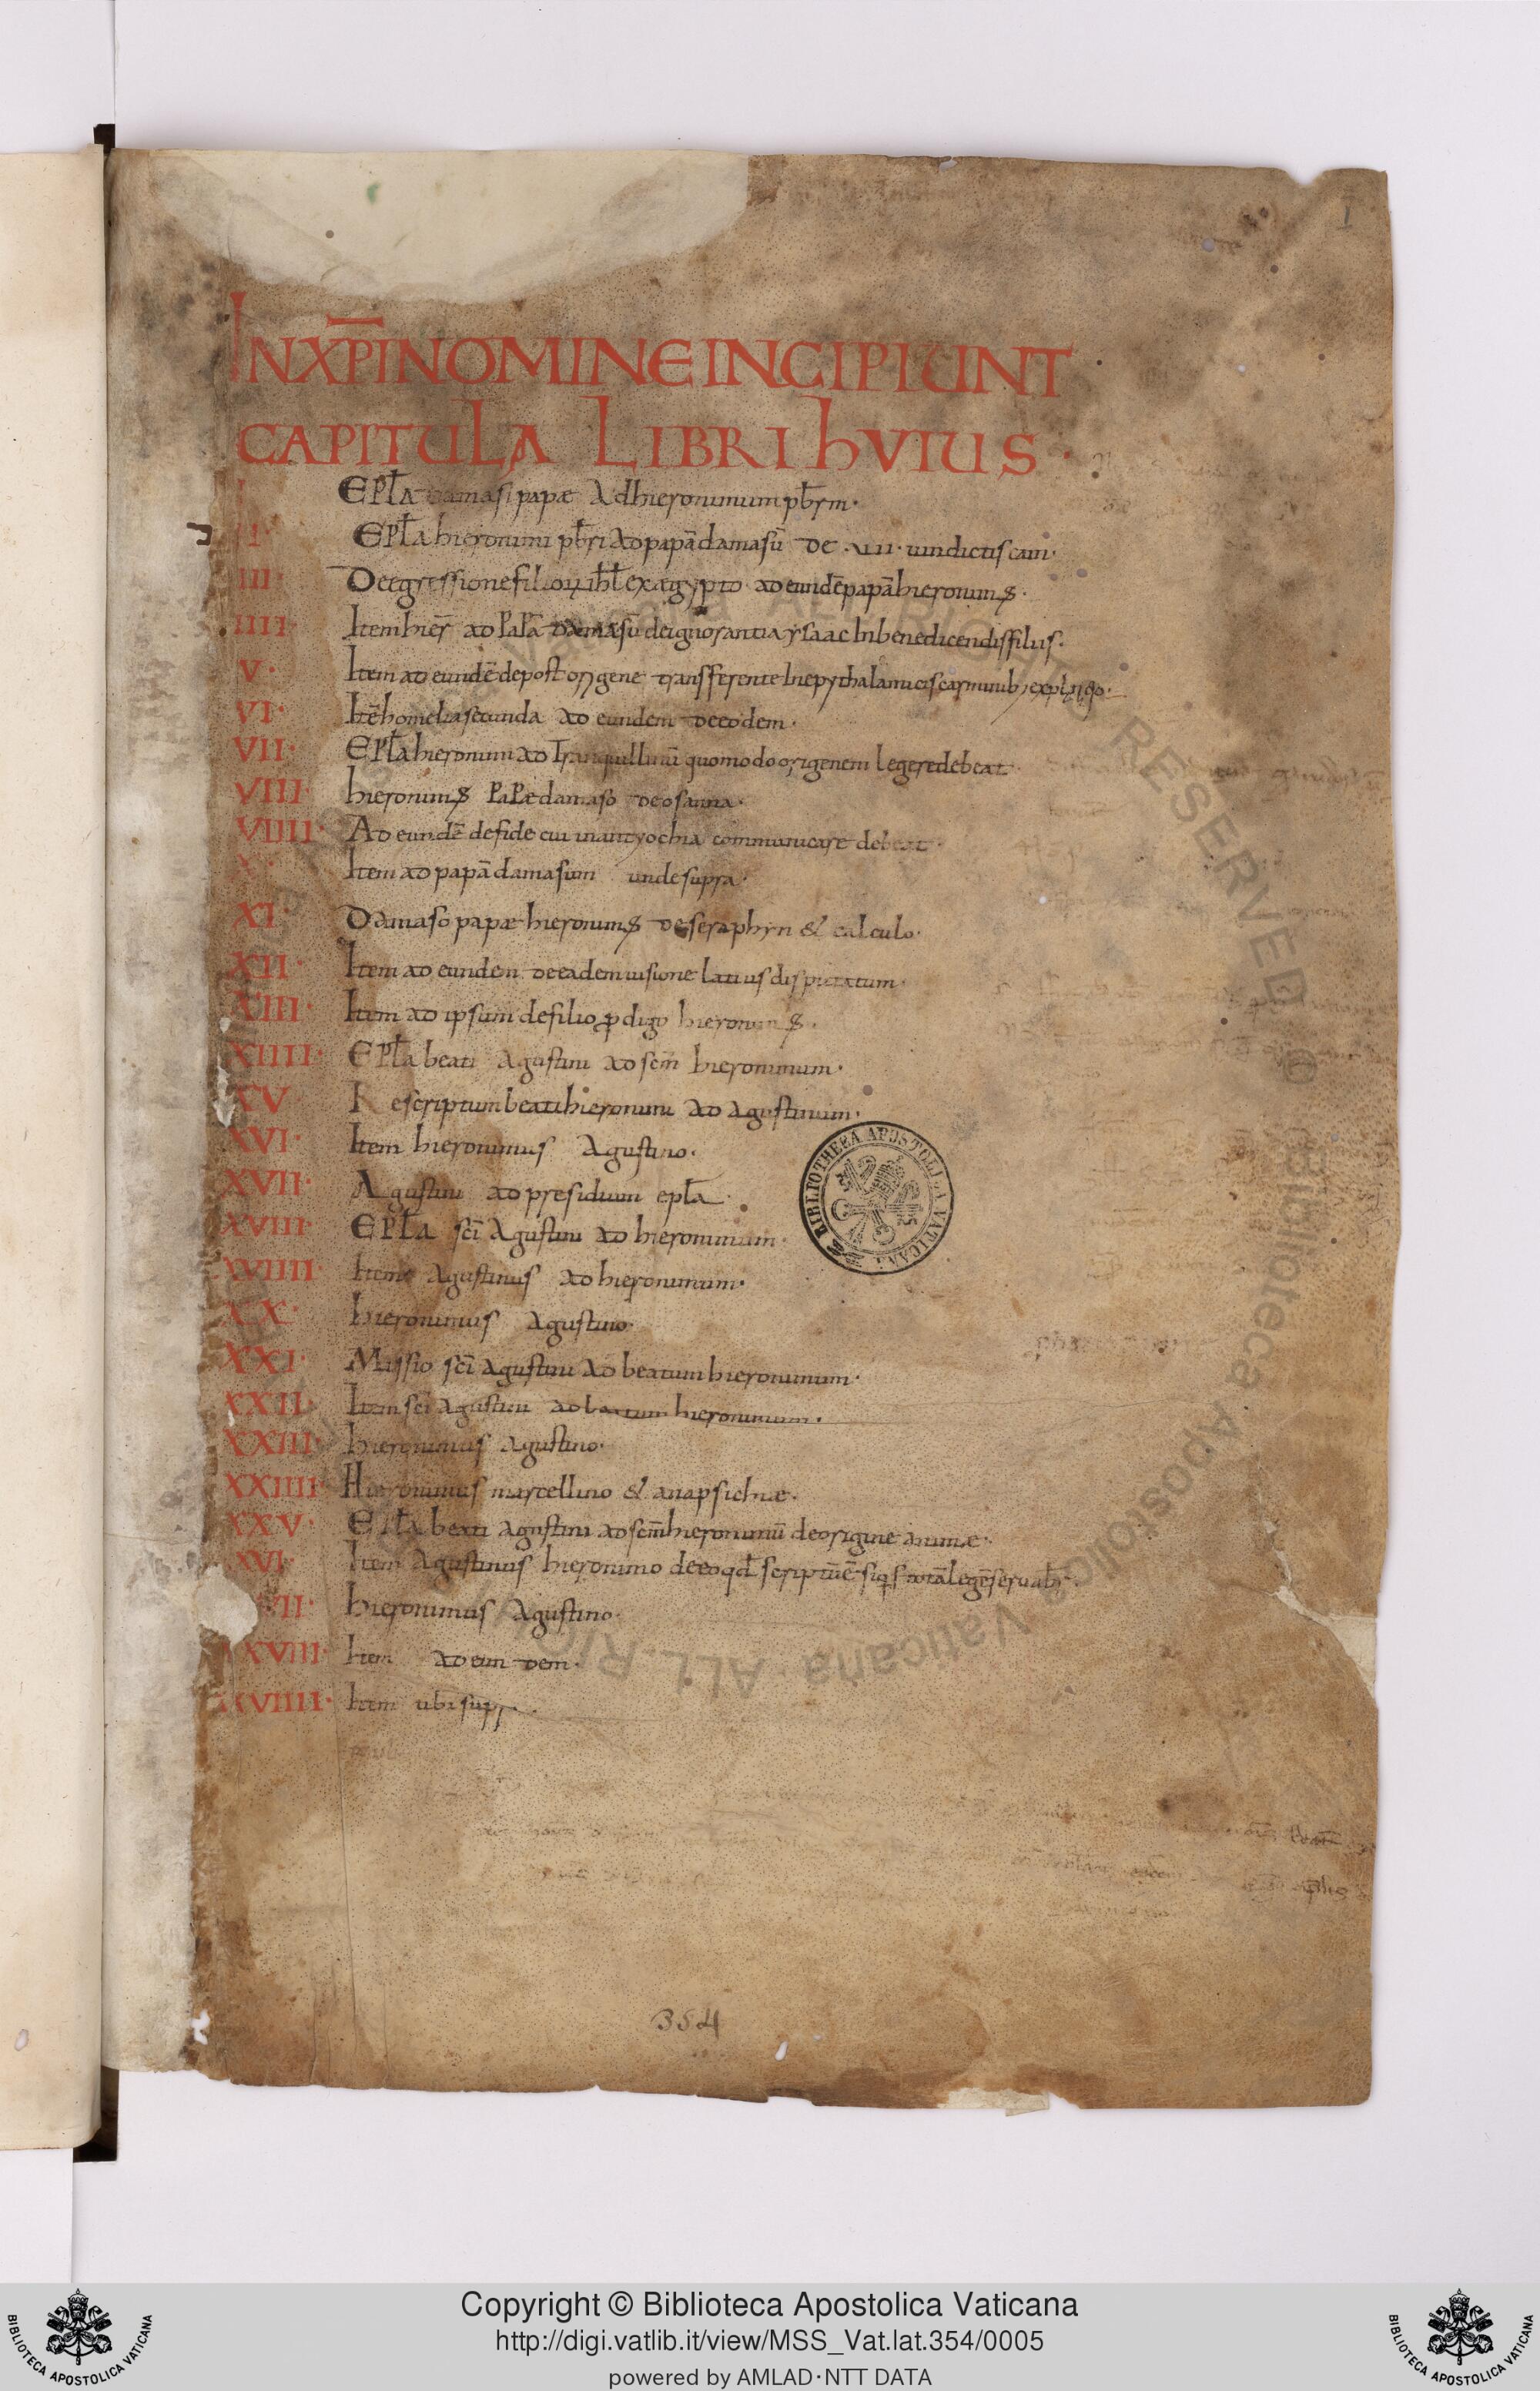 1
IN XP̄I NOMINE INCIPIUNT
CAPITULA LIBRI hVIUS·
I EPƚA damasi papæ Ad hieronimum pƀrm·
II· EPƚa hieronimi pƀri ad papā damasū de ·VII· uindictis cain·
III· De egressione filioꝝ iƀƚ ex ægypto ad eundē papā hieronimus·
IIII· Item hier̄ ad PaPā damasū de ignorantia ysaac In benedicendis filiis·
V· Item ad eundē de post origene transferente In epythalamiis carminib;
VI· Itē homelia secunda ad eundem de eodem·
VII· EPƚa hieronimi ad Tranquillinū quomodo origenem legere debeat·
VIII· hieronimus PaPæ damaso de osanna·
VIIII· Ad eundē de fide cui in antyochia communicare debeat·
X· Item ad papā damasum unde supra·
XI· Damaso papæ hieronimus de seraphyn & calculo·
XII· Item ad eundem de eadem uisione latius disputatum·
XIII· Item ad ipsum de filio ꝓdigo hieronimus·
XIIII· EPƚa beati Agustini ad sc̄m hieronimum·
XV Rescriptum beati hieronimi ad Agustinum·
XVI· Item hieronimus Agustino·
XVII· Agustini ad presidium epƚa·
XVIII EPƚa sc̄i Agustini ad hieronimum·
XVIIII· Item Agustinus ad hieronimum·
XX· hieronimus Agustino·
XXI· Missio sc̄i Agustini Ad beatum hieronimum·
XXII· Item sc̄i Agustini ad beatum hieronimum·
XXIII· hieronimus Agustino·
XXIIII· Hieronimus marcellino & anapsichiæ·
XXV· EPƚa beati Agustini ad sc̄m hieronimū de origine animæ·
XVI· Item Agustinus hieronimo de eo qđ scriptū ē siqs totā legē seruaƀ·
VII· hieronimus Agustino·
XVIII· Item ad eundem·
XVIIII· Item ubi supra·
BIBLIOTHECA APOSTOLICA VATICANA
354
Copyright © Biblioteca Apostolica Vaticana
http://digi.vatlib.it/view/MSS_Vat.lat.354/0005
powered by AMLAD·NTT DATA
BIBLIOTECA APOSTOLICA VATICANA
BIBLIOTECA APOSTOLICA VATICANA